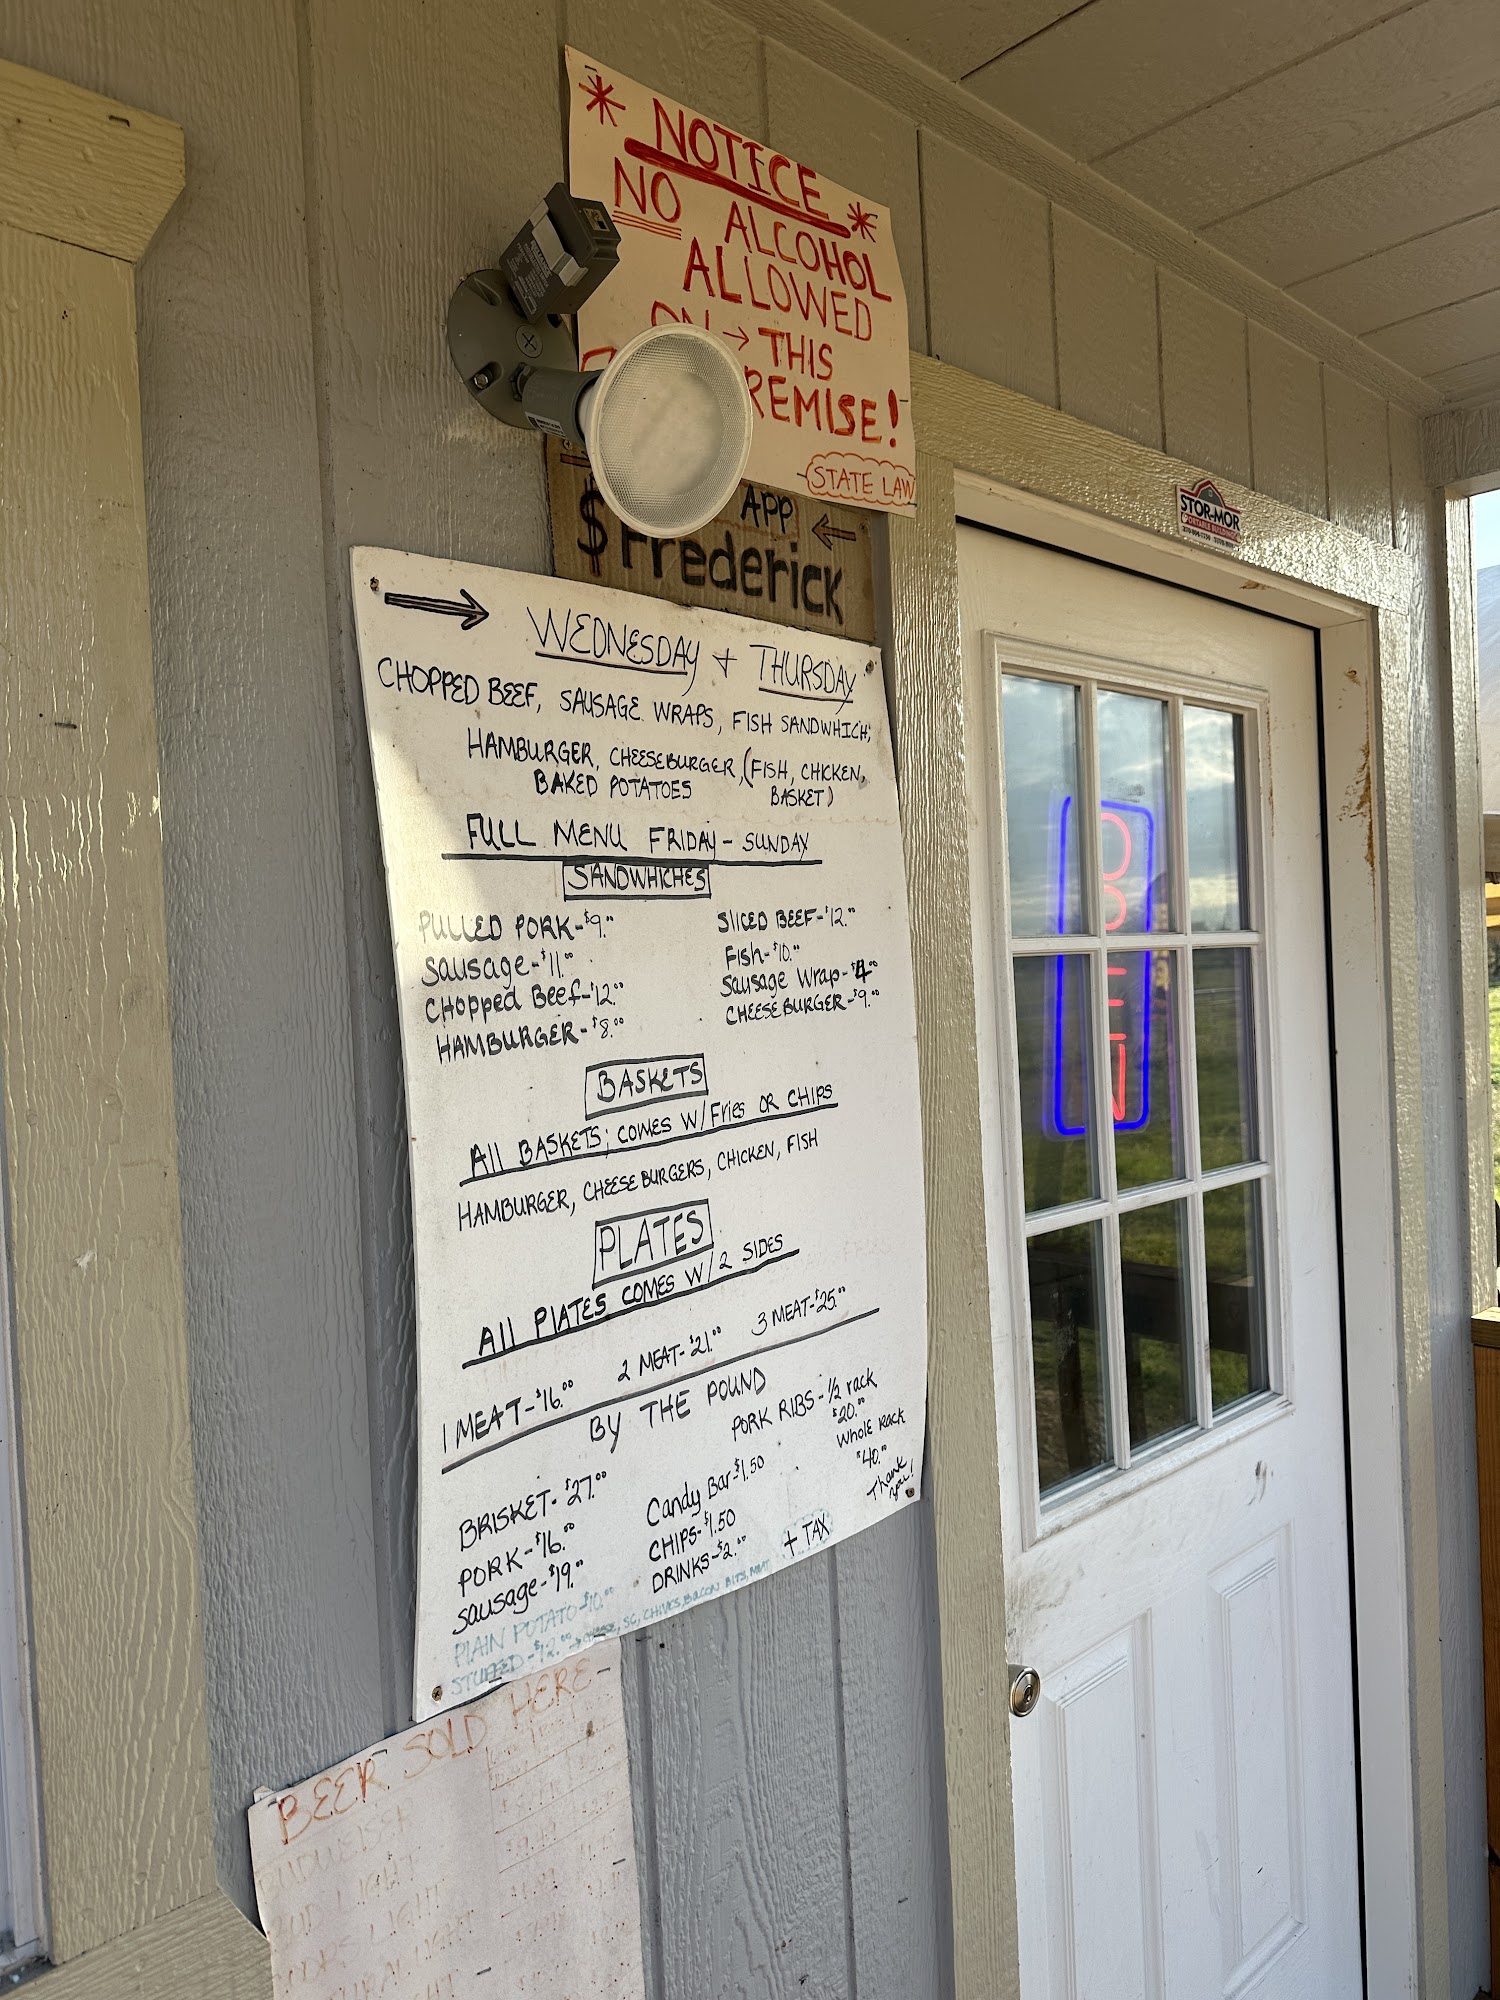 * NOTICE *
NO ALCOHOL
ALLOWED
ON → THIS
REMISE!
STATE LAW
APP ←
$Frederick
STOR-MOR
PORTABLE BUILDINGS
→ WEDNESDAY + THURSDAY
CHOPPED BEEF, SAUSAGE WRAPS, FISH SANDWHICH,
HAMBURGER, CHEESEBURGER, (FISH, CHICKEN,
BAKED POTATOES BASKET)
FULL MENU FRIDAY - SUNDAY
SANDWHICHES
PULLED PORK-$9.00 SLICED BEEF-$12.00
Sausage-$11.00 Fish-$10.00
Chopped Beef-$12.00 Sausage Wrap-$4.00
HAMBURGER-$8.00 CHEESEBURGER-$9.00
BASKETS
All BASKETS; COMES W/Fries OR CHIPS
HAMBURGER, CHEESEBURGERS, CHICKEN, FISH
PLATES
All PLATES COMES W/2 SIDES
1 MEAT-$16.00 2 MEAT-$21.00 3 MEAT-$25.00
BY THE POUND
BRISKET-$27.00
PORK-$16.00
Sausage-$19.00
Candy Bar-$1.50
CHIPS-$1.50
DRINKS-$2.00
PORK RIBS-1/2 rack
$20.00
Whole Rack
$40.00
Thank
you!
+ TAX
PLAIN POTATO-$10.00
STUFFED-$12.00 → CHEESE, SC, CHIVES, BACON BITS, MEAT
BEER SOLD HERE
BUDWEISER
BUD LIGHT
COORS LIGHT
OPEN